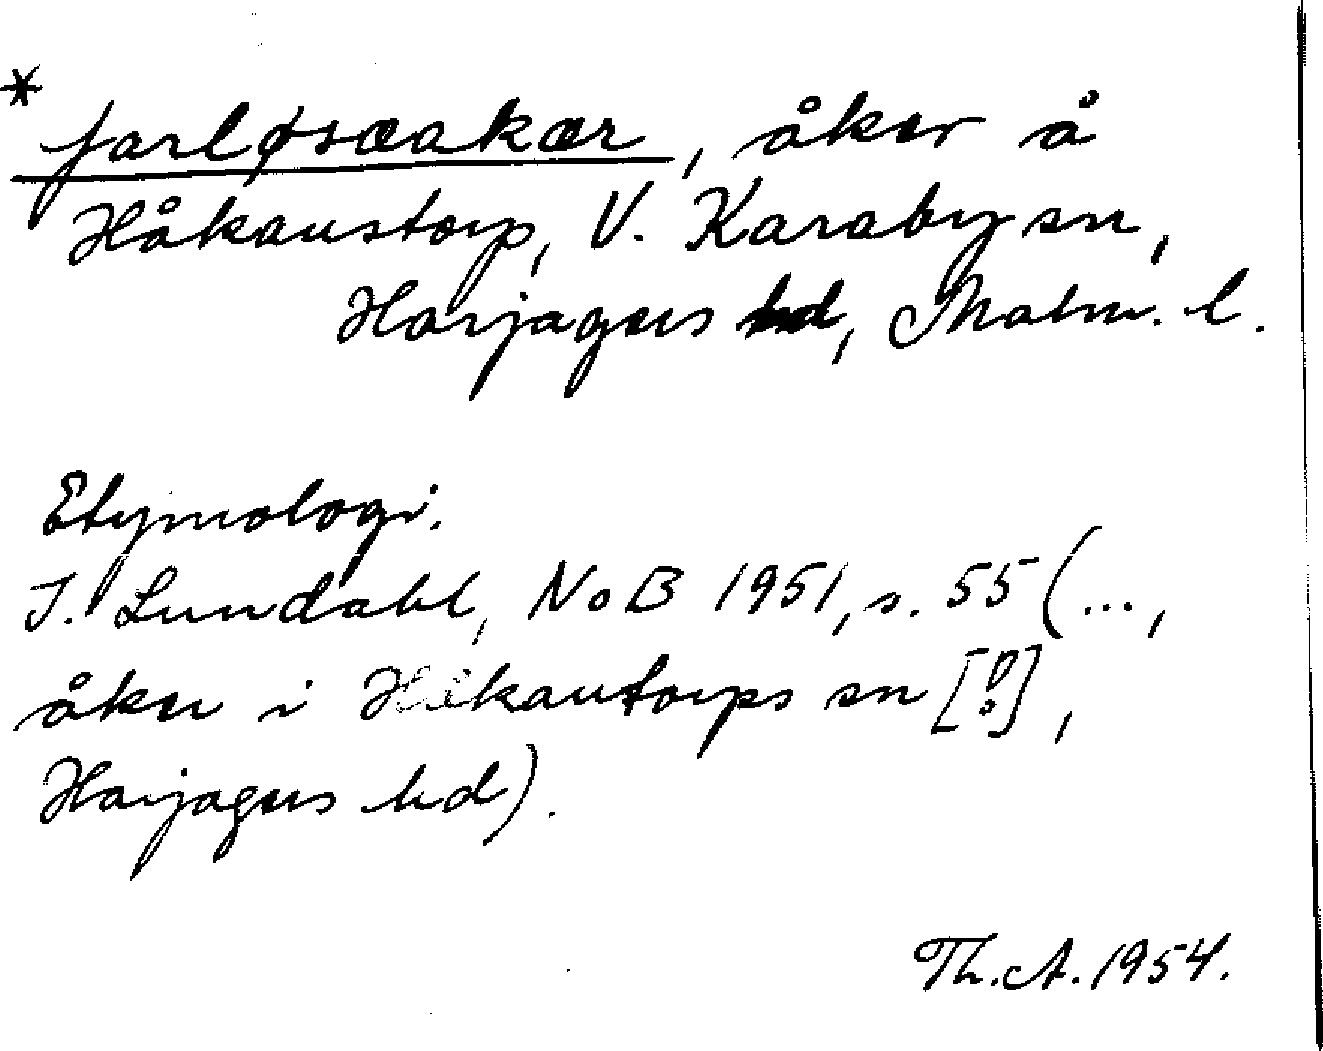 * farløsæakær, åker å
Håkanstorp, V. Karaby sn,
Harjagers hd, Malm. l.
Etymologi.
I. Lundahl, NoB 1951, s. 55 (...,
åker i Håkantorps sn [!],
Harjagers hd).
Th. A. 1954.